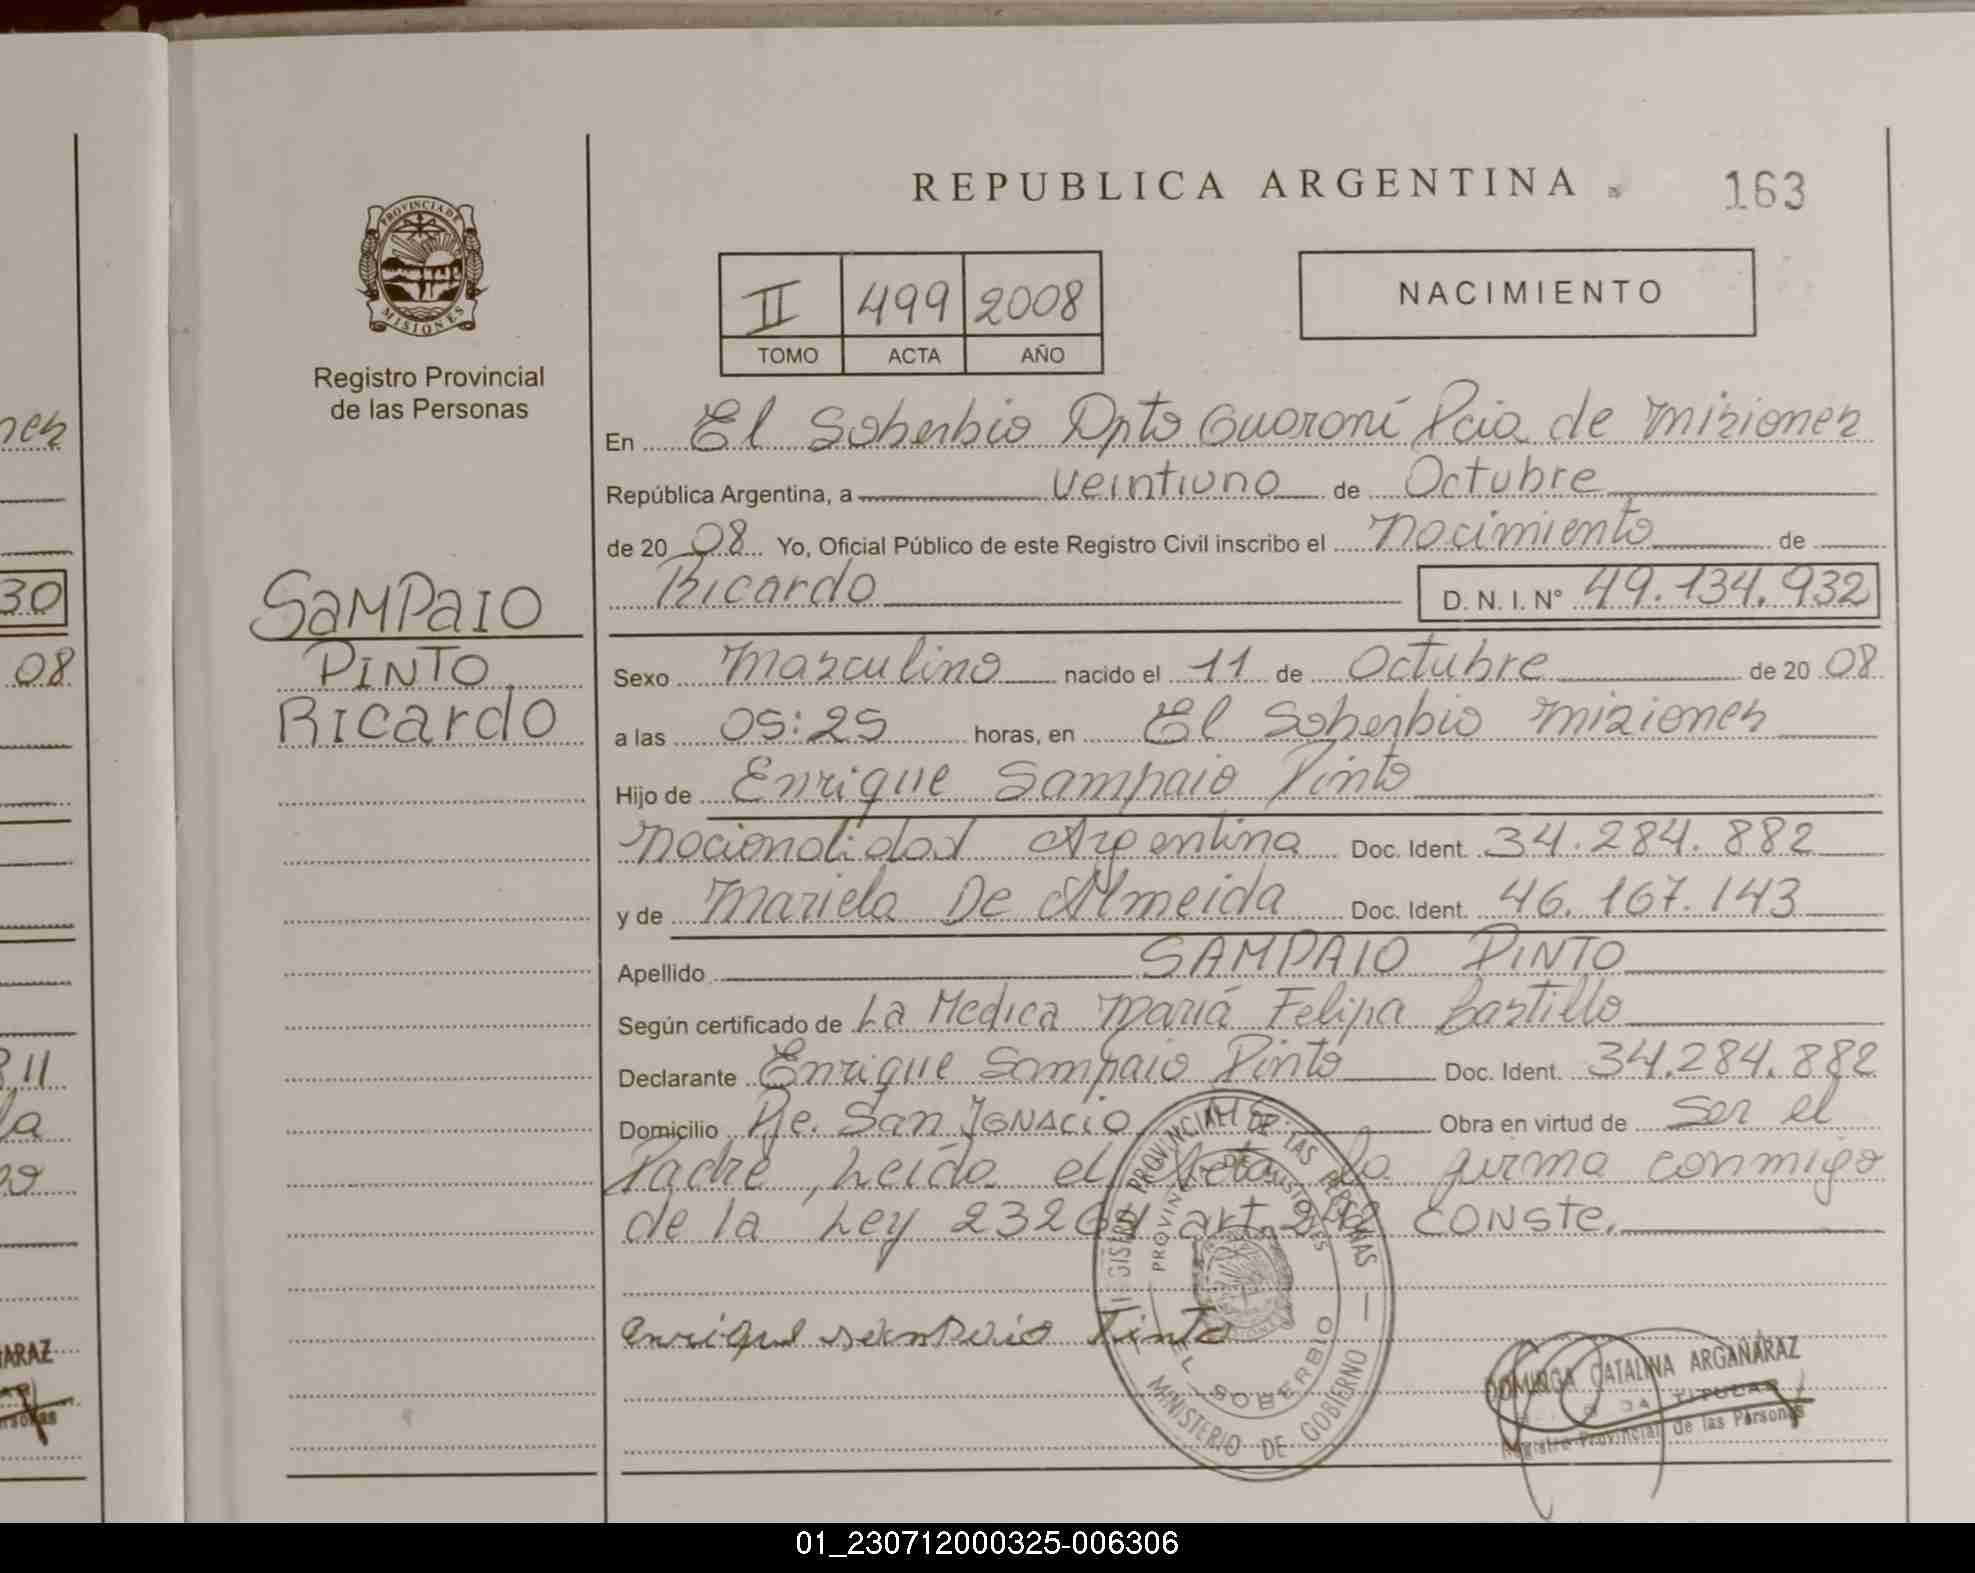 REPUBLICA ARGENTINA
163
PROVINCIA DE
MISIONES
Registro Provincial
de las Personas
II 499 2008
TOMO ACTA AÑO
NACIMIENTO
En El Soberbio Dpto Guaraní Pcia de Misiones
República Argentina, a veintiuno de Octubre
de 20 08 Yo, Oficial Público de este Registro Civil inscribo el Nacimiento de
Ricardo D. N. I. N° 49.134.932
SAMPAIO
PINTO
Ricardo
Sexo Masculino nacido el 11 de Octubre de 20 08
a las 05:25 horas, en El Soberbio Misiones
Hijo de Enrique Sampaio Pinto
Nacionalidad Argentina Doc. Ident. 34.284.882
y de Mariela De Almeida Doc. Ident. 46.167.143
Apellido SAMPAIO PINTO
Según certificado de La Medica María Felipa Castillo
Declarante Enrique Sampaio Pinto Doc. Ident. 34.284.882
Domicilio Pje. San Ignacio Obra en virtud de ser el
Padre, Leída el Acta la firma conmigo
de la Ley art. CONSTE.
Enrique Sampaio Pinto
PROVINCIAL DE LAS PERSONAS
PROVINCIA DE MISIONES
EL SOBERBIO
MINISTERIO DE GOBIERNO
DOMINGA CATALINA ARGAÑARAZ
TITULAR
Registro Provincial de las Personas
nes
30
08
811
la
ARAZ
01_230712000325-006306